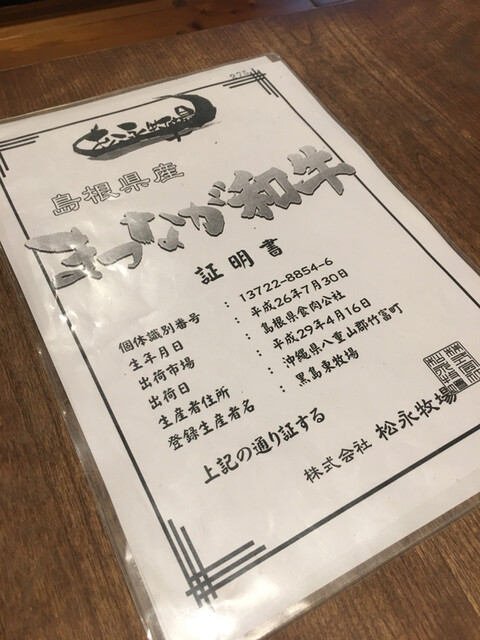 松永牧場
島根県産
まつなが和牛
証明書
個体識別番号 : 13722-8854-6
生年月日 : 平成26年7月30日
出荷市場 : 島根県食肉公社
出荷日 : 平成29年4月16日
生産者住所 : 沖縄県八重山郡竹富町
登録生産者名 : 黒島東牧場
上記の通り証する
株式会社 松永牧場